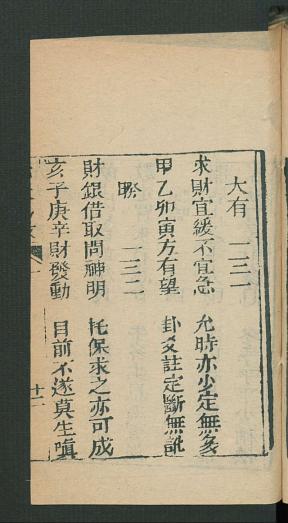 大有 一三一
求財宜緩不宜急 允時亦少定無多
甲乙卯寅方有望 卦爻註定斷無訛
睽 一三二
財銀借取問神明 托保求之亦可成
亥子庚辛財發動 目前不遂莫生嗔
十二